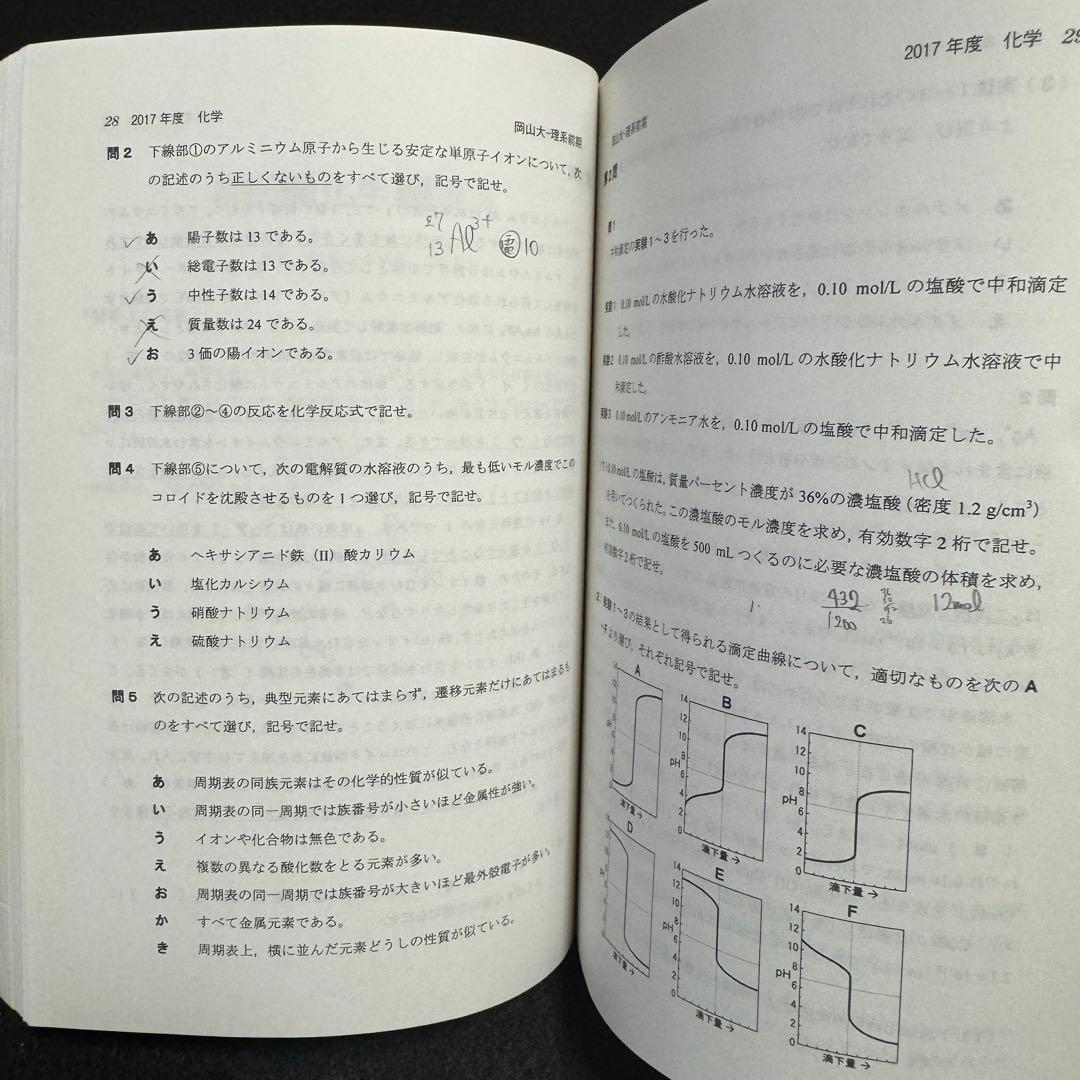 28 2017年度 化学
岡山大-理系前期
問2 下線部①のアルミニウム原子から生じる安定な単原子イオンについて，次
の記述のうち正しくないものをすべて選び，記号で記せ。
27
13 Al 3+ 電 10
あ 陽子数は13である。
い 総電子数は13である。
う 中性子数は14である。
え 質量数は24である。
お 3価の陽イオンである。
問3 下線部②～④の反応を化学反応式で記せ。
問4 下線部⑤について，次の電解質の水溶液のうち，最も低いモル濃度でこの
コロイドを沈殿させるものを1つ選び，記号で記せ。
あ ヘキサシアニド鉄（II）酸カリウム
い 塩化カルシウム
う 硝酸ナトリウム
え 硫酸ナトリウム
問5 次の記述のうち，典型元素にあてはまらず，遷移元素だけにあてはまるも
のをすべて選び，記号で記せ。
あ 周期表の同族元素はその化学的性質が似ている。
い 周期表の同一周期では族番号が小さいほど金属性が強い。
う イオンや化合物は無色である。
え 複数の異なる酸化数をとる元素が多い。
お 周期表の同一周期では族番号が大きいほど最外殻電子が多い。
か すべて金属元素である。
き 周期表上，横に並んだ元素どうしの性質が似ている。
2017年度 化学 29
岡山大-理系前期
第2問
問1
中和滴定の実験1～3を行った。
実験1 0.10 mol/Lの水酸化ナトリウム水溶液を，0.10 mol/Lの塩酸で中和滴定
した。
実験2 0.10 mol/Lの酢酸水溶液を，0.10 mol/Lの水酸化ナトリウム水溶液で中
和滴定した。
実験3 0.10 mol/Lのアンモニア水を，0.10 mol/Lの塩酸で中和滴定した。
HCl
(1) 0.10 mol/Lの塩酸は，質量パーセント濃度が36%の濃塩酸（密度1.2 g/cm³）
を用いてつくられた。この濃塩酸のモル濃度を求め，有効数字2桁で記せ。
また，0.10 mol/Lの塩酸を500 mLつくるのに必要な濃塩酸の体積を求め，
有効数字2桁で記せ。
432
1200
12mol
(2) 実験1～3の結果として得られる滴定曲線について，適切なものを次のA
～Fより選び，それぞれ記号で記せ。
A
B
C
14
12
10
8
pH
6
4
2
0
滴下量→
滴下量→
滴下量→
D
E
F
14
12
10
8
pH
6
4
2
0
滴下量→
滴下量→
滴下量→